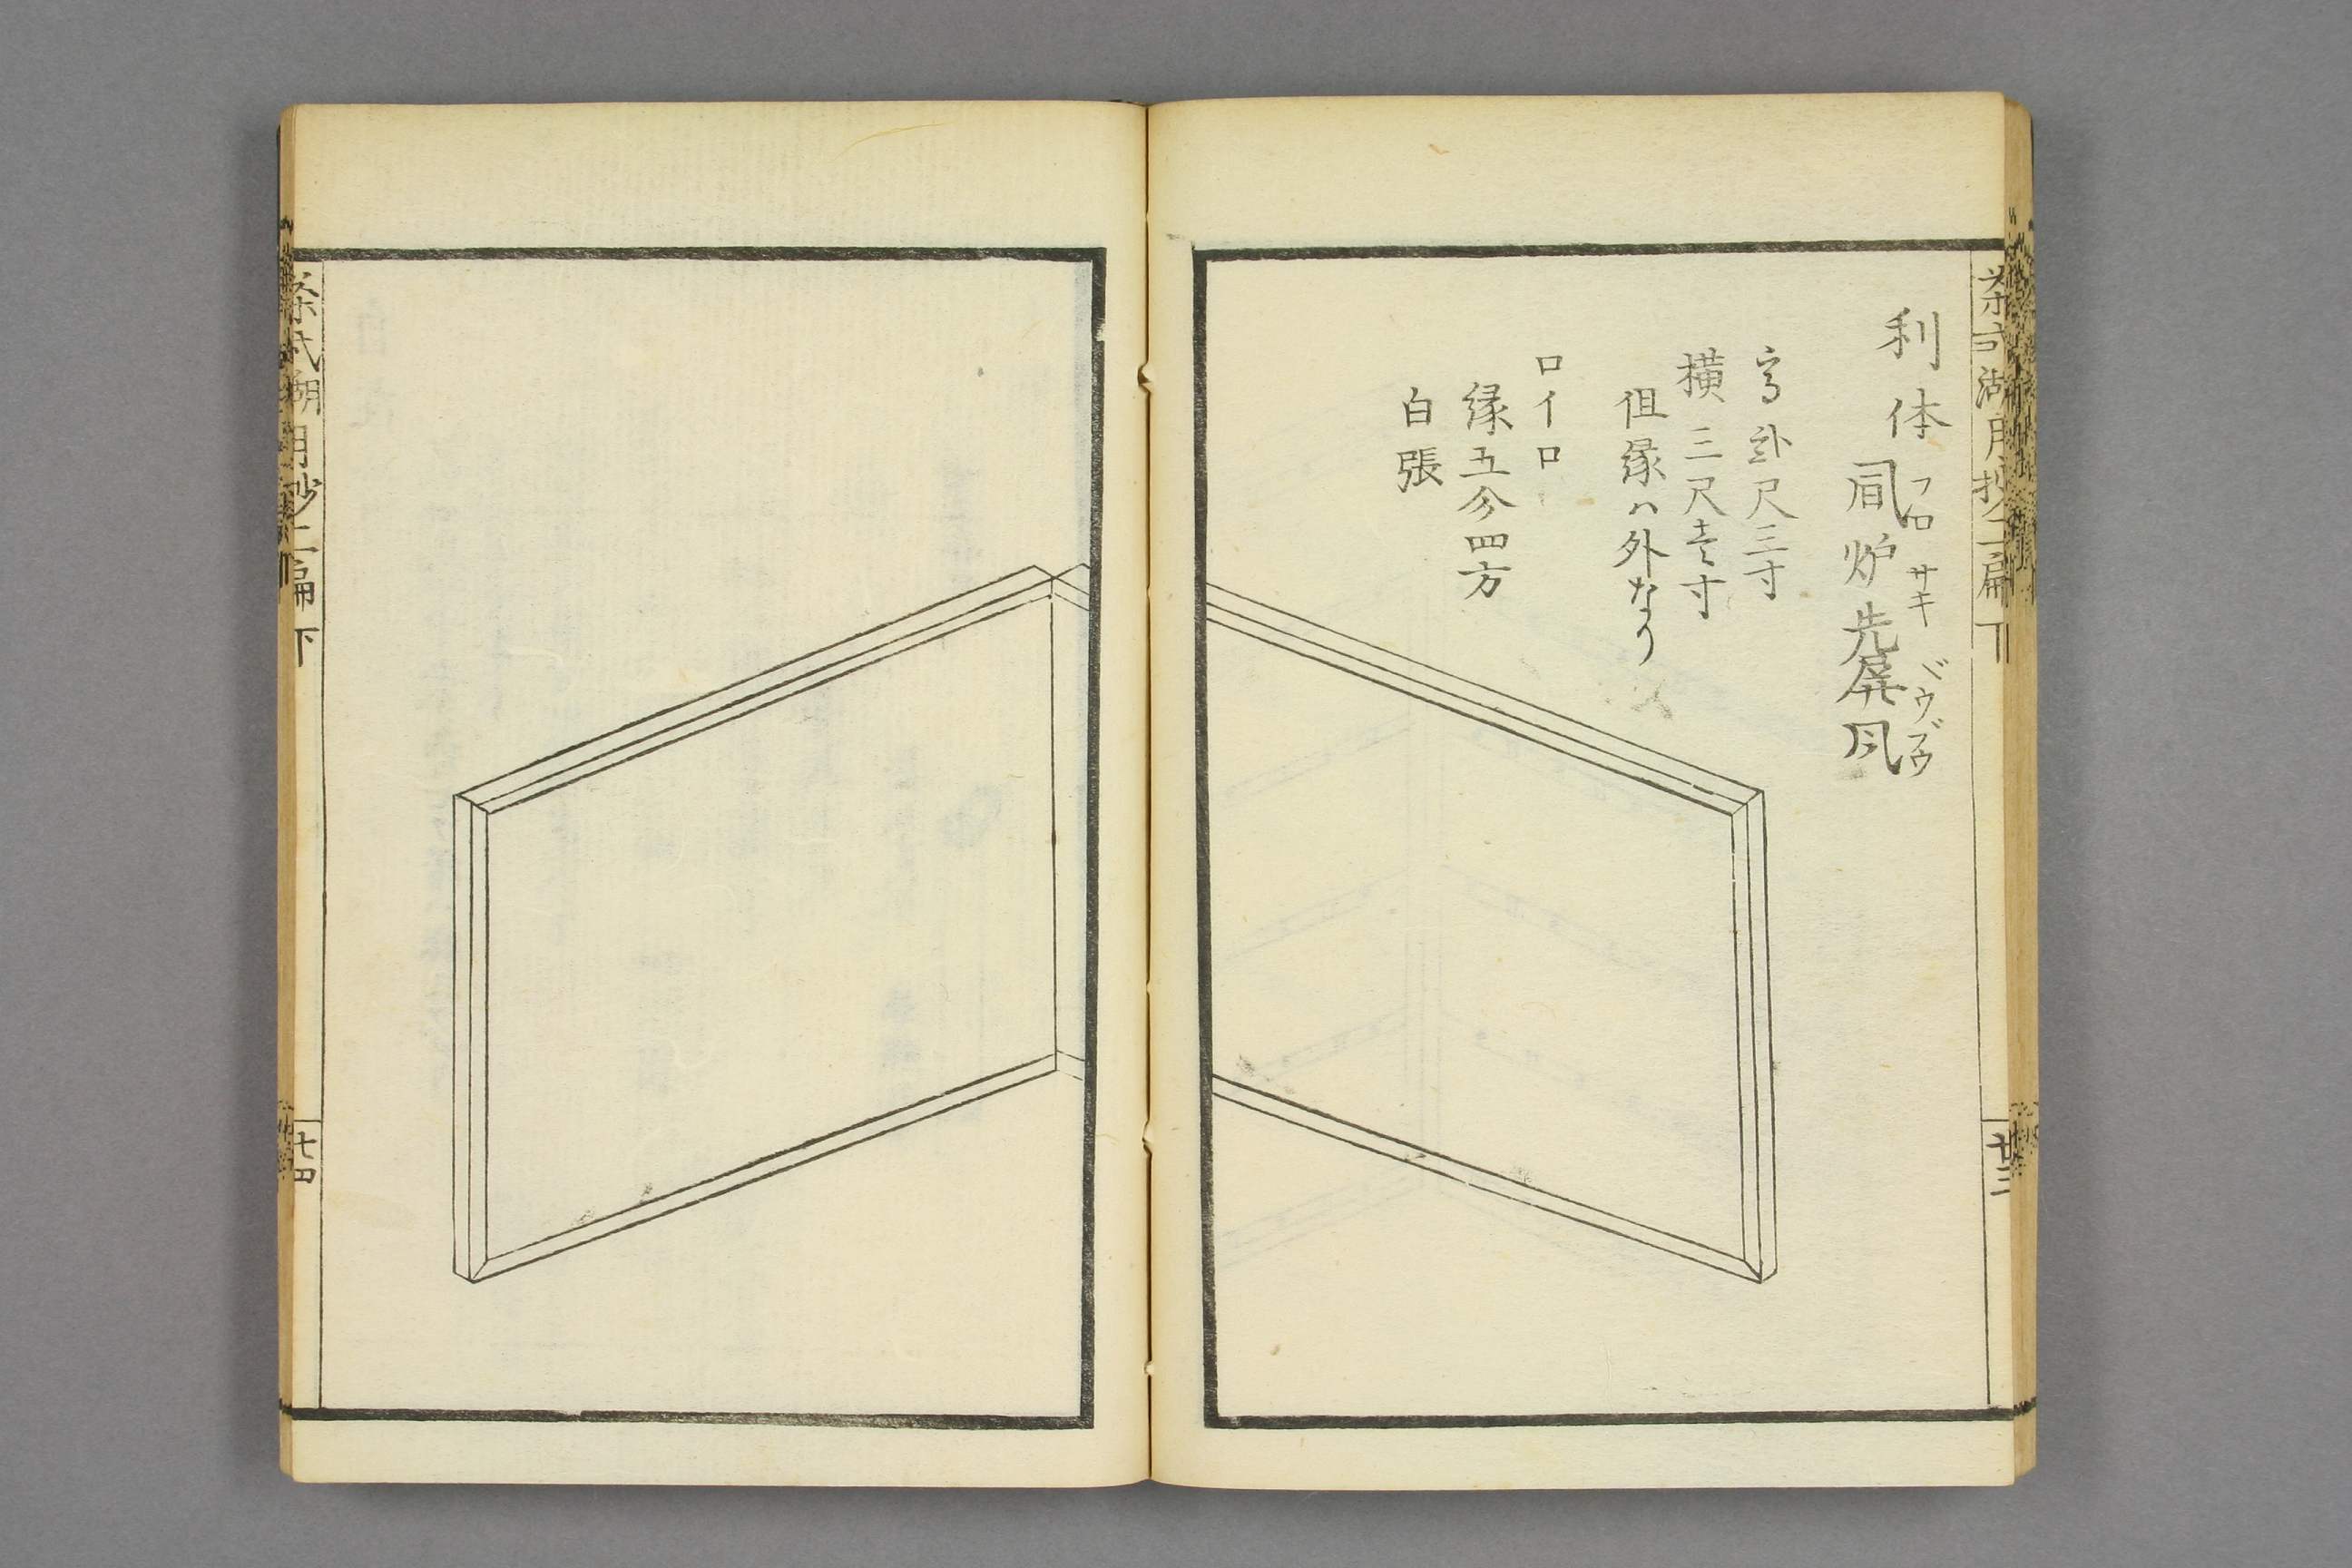 茶式湖月抄二編下
廿三
利休
風炉先屏風
フロ サキ ベウブウ
高弐尺三寸
横三尺壱寸
但縁ハ外なり
ロイロ
縁五分四方
白張
茶式湖月抄二編下
廿四